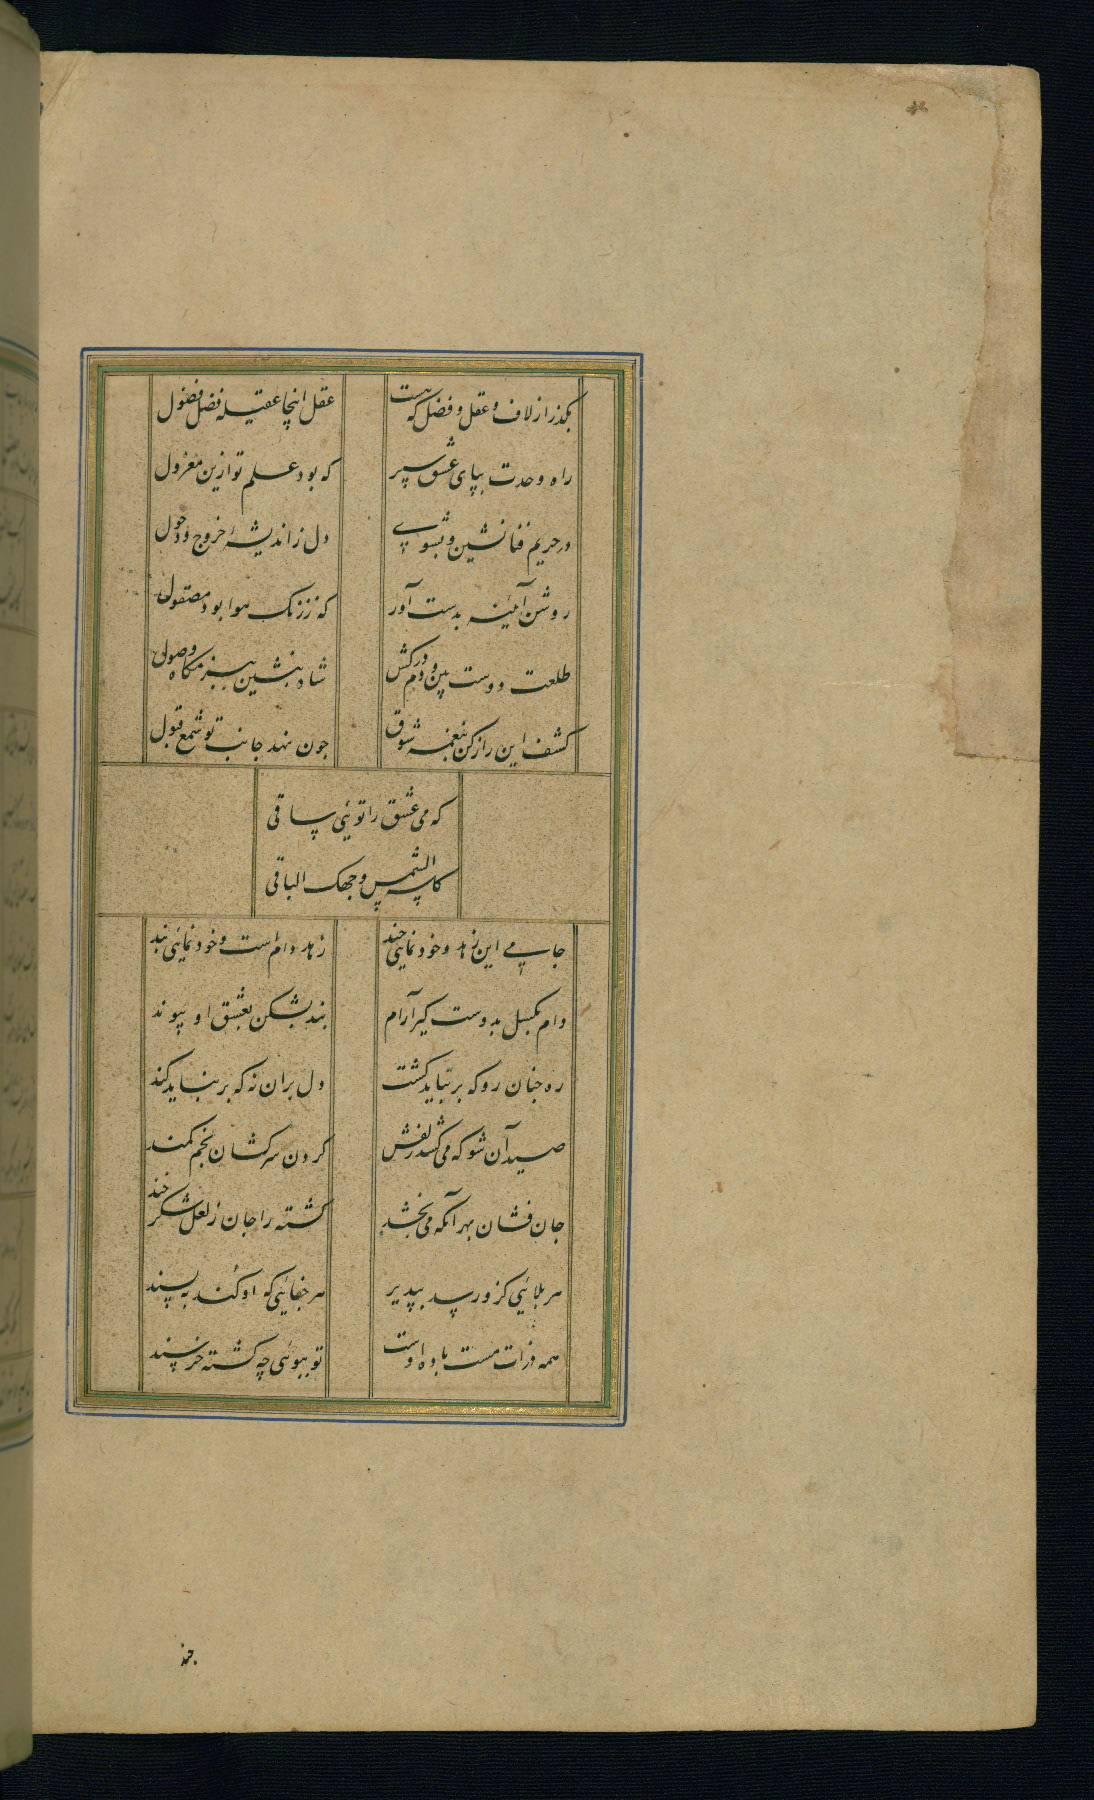 بگذر از لاف و عقل و فضل که هست عقل اینجا عقیله فضل فضول
راه وحدت بپای عشق سپر که بود علم تو ازین معزول
در حریم فنا نشین و بشوی دل ز اندیشهٔ خروج و دخول
روشن آئینه بدست آور که ز زنک هوا بود مصقول
طلعت دوست بین و دم درکش شاد بنشین ببزمکاه وصول
کشف این راز کن بنغمه شوق چون نهد جانب تو شمع قبول
که می عشق را توئی ساقی
کاسه الشمس وجهک الباقی
جامی این زهد و خودنمایی چند زهد دام است و خودنمائی بند
دام بکسل بدوست گیر آرام بند بشکن بعشق او پیوند
ره چنان رو که بر نباید کشت دل بران نه که بر نباید کند
صید آن شو که می کشد زلفش کردن سرکشان بخم کمند
جان فشان بهر آنکه می بخشد کشته را جان ز لعل شکر خند
هر بلائی کزو رسد بپذیر هر جفائی که او کند به پسند
همه ذرات مست باده اوست تو ببوئی چه کشته خرسند